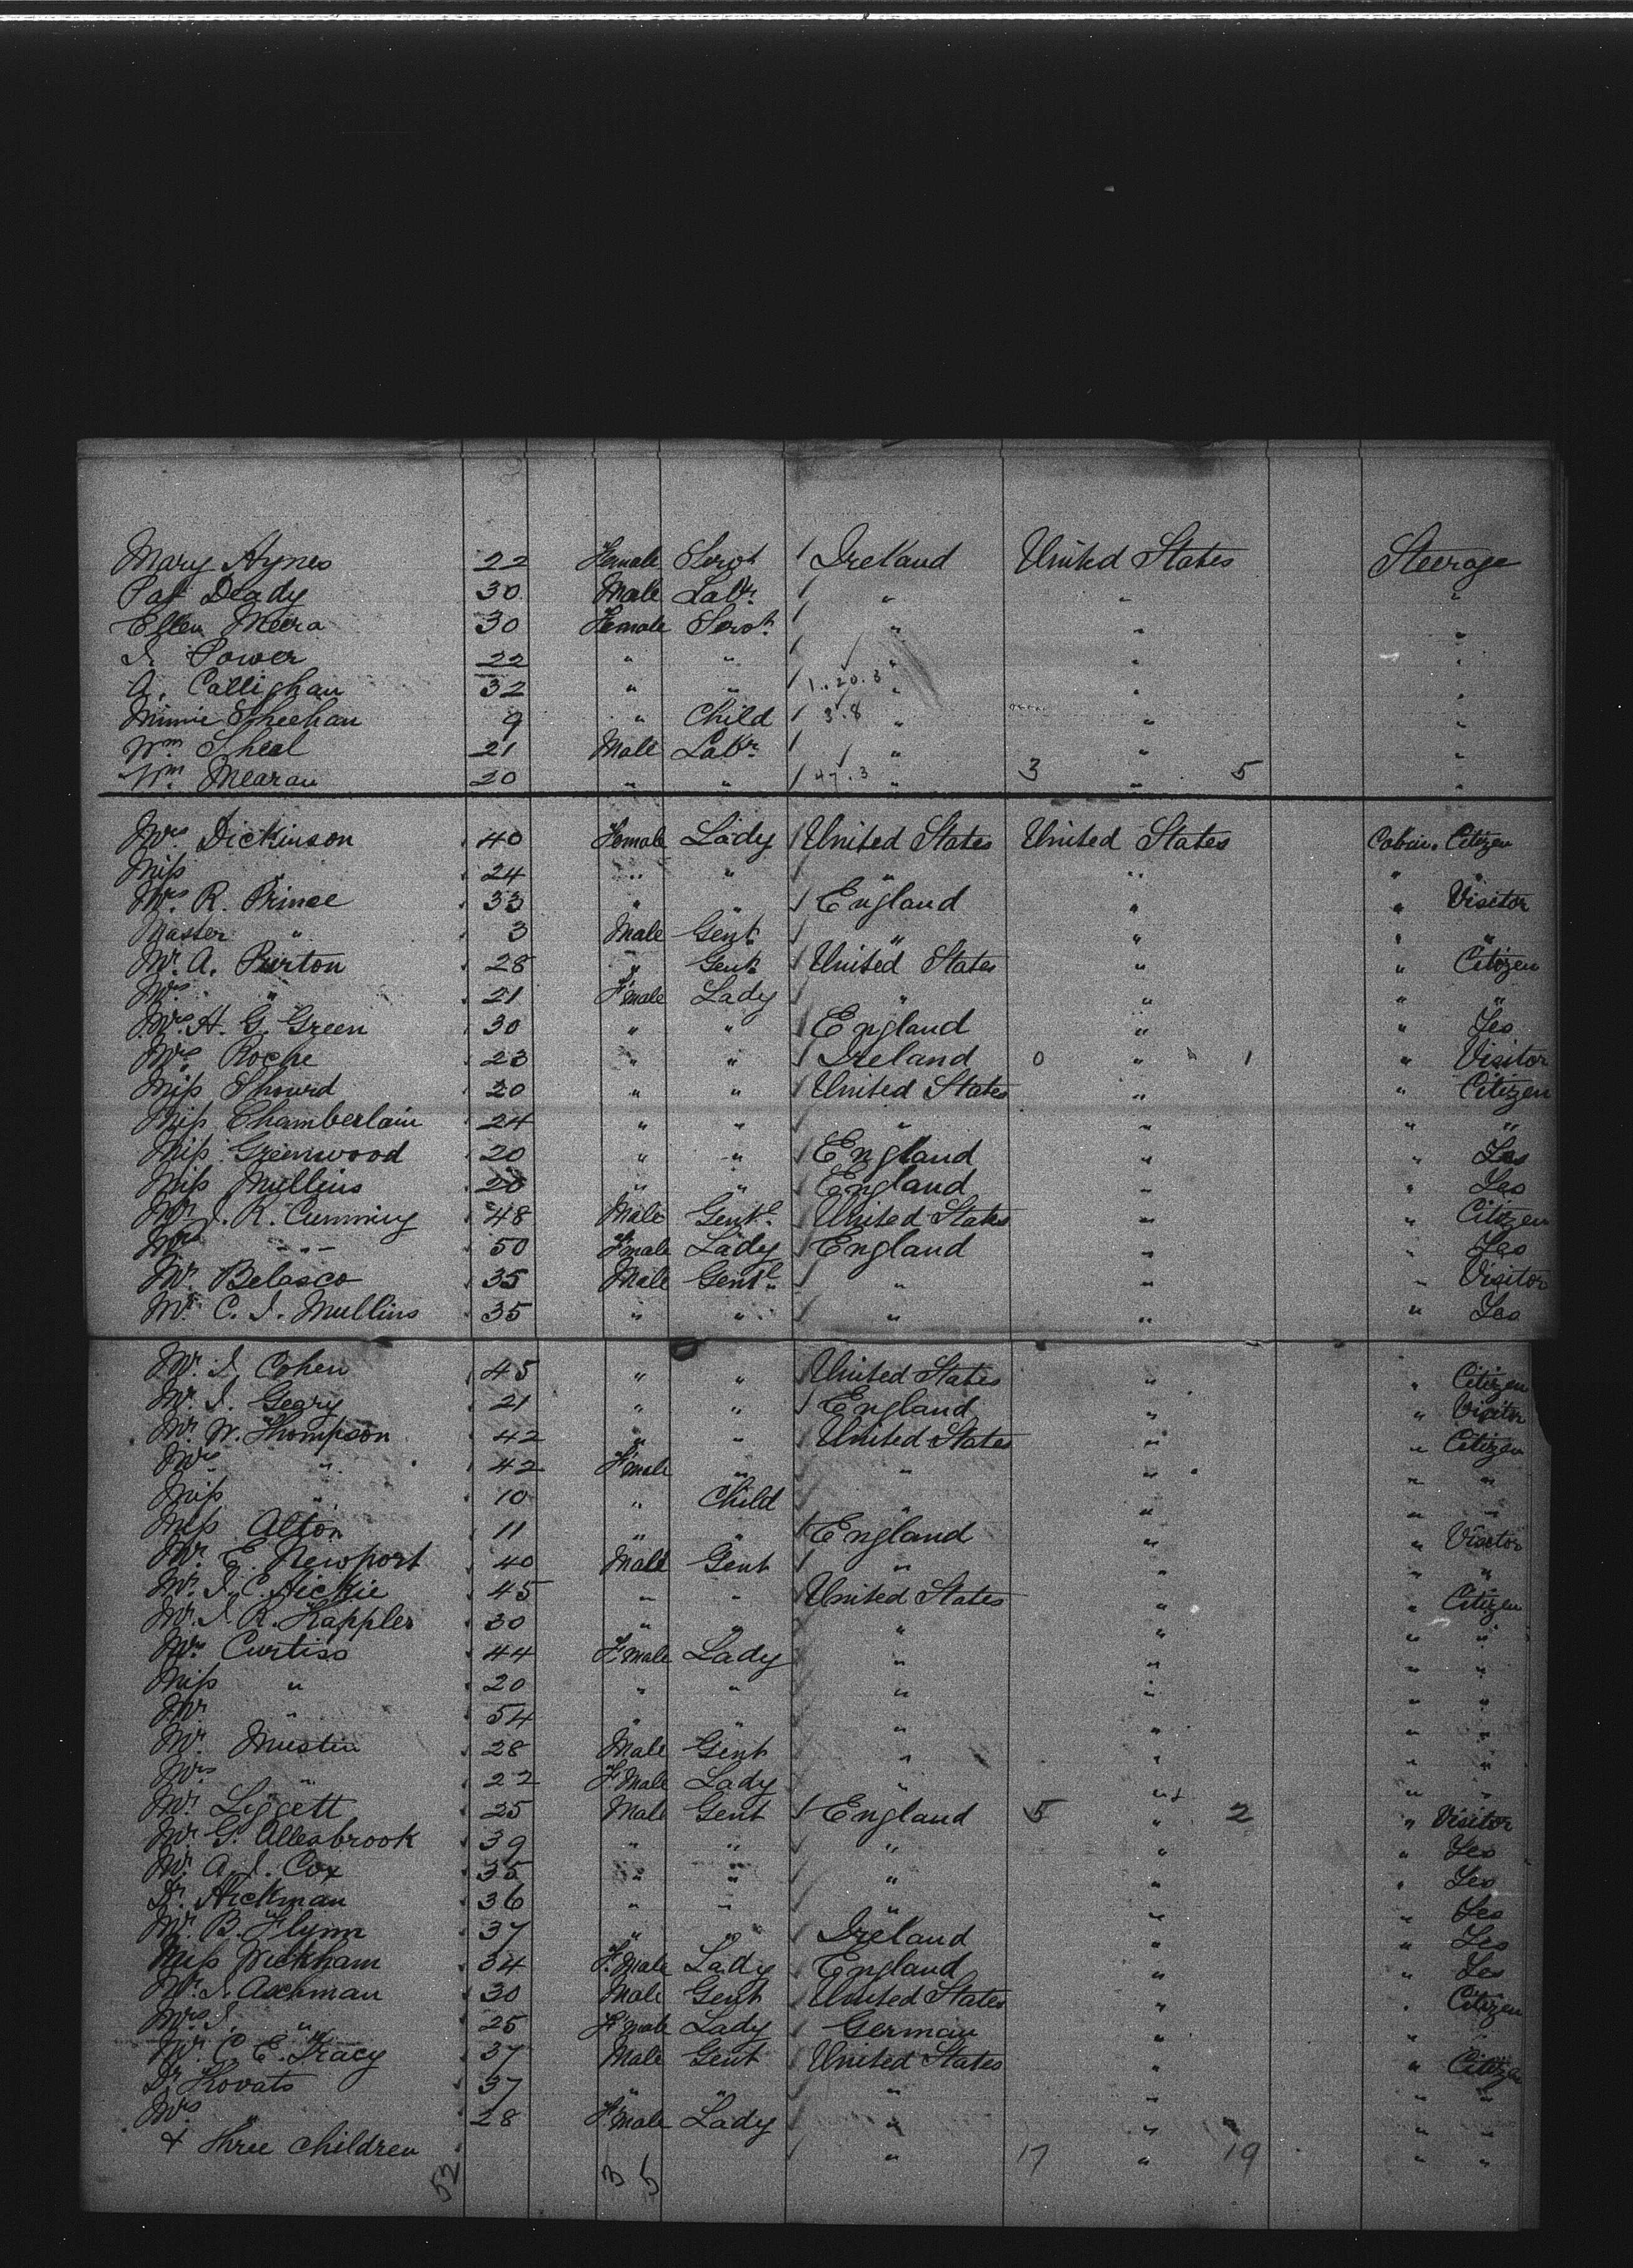 Mary Hynes 22 Female Servt / Ireland United States Steerage
Pat Deady 30 Male Labr. / " " "
Ellen Meera 30 Female Servt. / " " "
J. Power 22 " " / " " "
A. Callighan 32 " " / 1..20.3 " " "
Minnie Sheehan 9 " Child / 3.8 " " "
Wm. Sheel 21 Male Labr. / " " "
Wm. Mearau 20 " " / 47.3 " 3 " 5 "
Mrs Dickinson 40 Female Lady / United States United States Cabin. Citizen
Miss " 24 " " / " " " "
Mrs. R. Prince 33 " " / England " " Visitor
Master " 3 Male Gent. / " " " "
Mr. A. Purton 28 " Gent. / United States " " Citizen
Mrs " 21 F'male Lady / " " " "
Mrs. H. G. Green 30 " " / England " " Les
Mrs Roche 23 " " / Ireland 0 " 1 " Visitor
Miss Shourd 20 " " / United States " " Citizen
Miss Chamberlain 24 " " / " " " "
Miss Greenwood 20 " " / England " " Les
Miss Mullins 20 " " / England " " Les
Mr J. R. Cumming 48 Male Gentl. / United States " " Citizen
Mrs " 50 F'male Lady / England " " Les
Mr. Belasco 35 Male Gentl. / " " " Visitor
Mr. C. J. Mullins 35 " " / " " " Les
Mr. J. Cohen 45 " " / United States " " Citizen
Mr. J. Geary 21 " " / England " " Visitor
Mr. W. Thompson 42 " " / United States " " Citizen
Mrs " 42 F'male " / " " " "
Miss " 10 " Child / " " " "
Miss Alton 11 " " / England " " Visitor
Mr. E. Newport 40 Male Gent / " " " "
Mr. J. C. Hickie 45 " " / United States " " Citizen
Mr. J. R. Kappler 30 " " / " " " "
Mrs Curtiss 44 F'male Lady / " " " "
Miss " 20 " " / " " " "
Mr " 54 " " / " " " "
Mr. Mustin 28 Male Gent / " " " "
Mrs " 22 F'Male Lady / " " " "
Mr. Liggett 25 Male Gent / England 5 " 2 " Visitor
Mr G. Allesbrook 39 " " / " " " Les
Mr. A. J. Cox 35 " " / " " " Les
Dr. Hickman 36 " " / " " " Les
Mr. B. Flynn 37 " " / Ireland " " Les
Miss Wickham 34 F.Male Lady / England " " Les
Mr. J. Aschman 30 Male Gent / United States " " Citizen
Mrs J. " 25 F'male Lady / German " " "
Mr. C. E. Tracy 37 Male Gent / United States " " Citizen
Dr Kovats 37 " " / " " " "
Mrs " 28 F'male Lady / " " " "
+ three children / " 17 " 19 " "
52 35